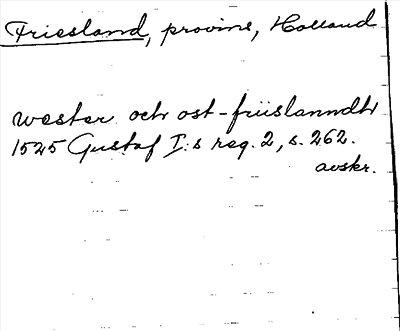 Friesland, provins, Holland
wester och ost-friislanndh
1525 Gustaf I:s reg. 2, s. 262.
avskr.